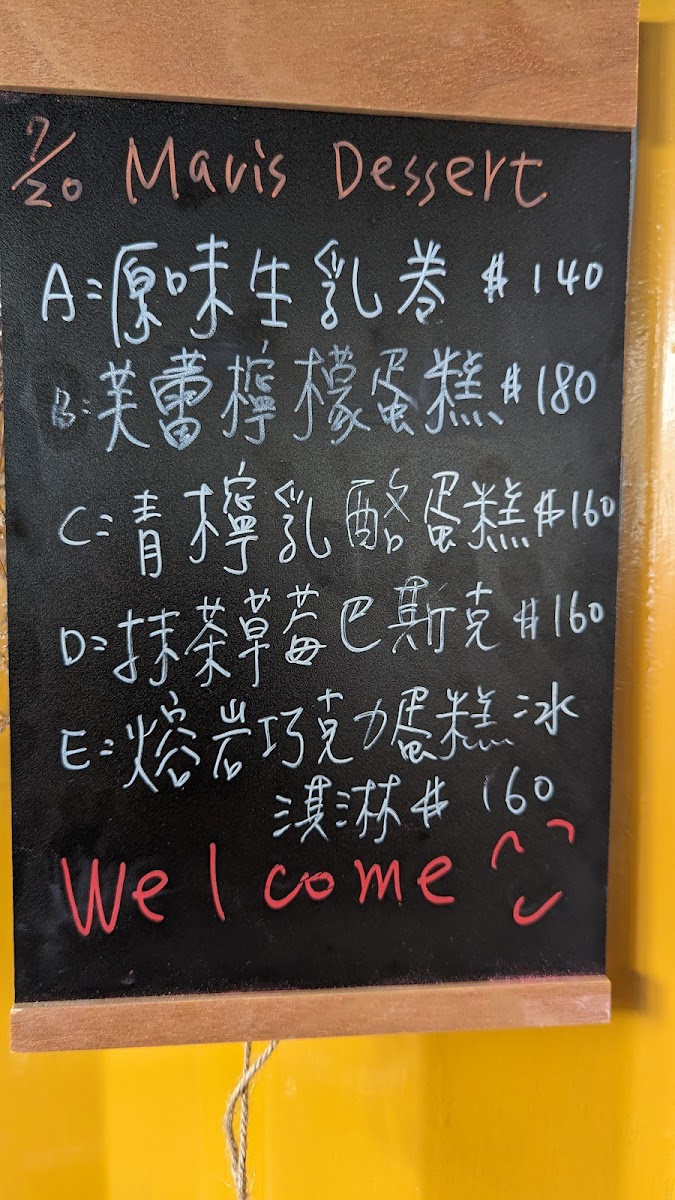 7/20 Mavis Dessert
A:原味生乳卷 #140
B:芙蕾檸檬蛋糕#180
C:青檸乳酪蛋糕#160
D:抹茶草莓巴斯克#160
E:熔岩巧克力蛋糕冰
淇淋# 160
Welcome